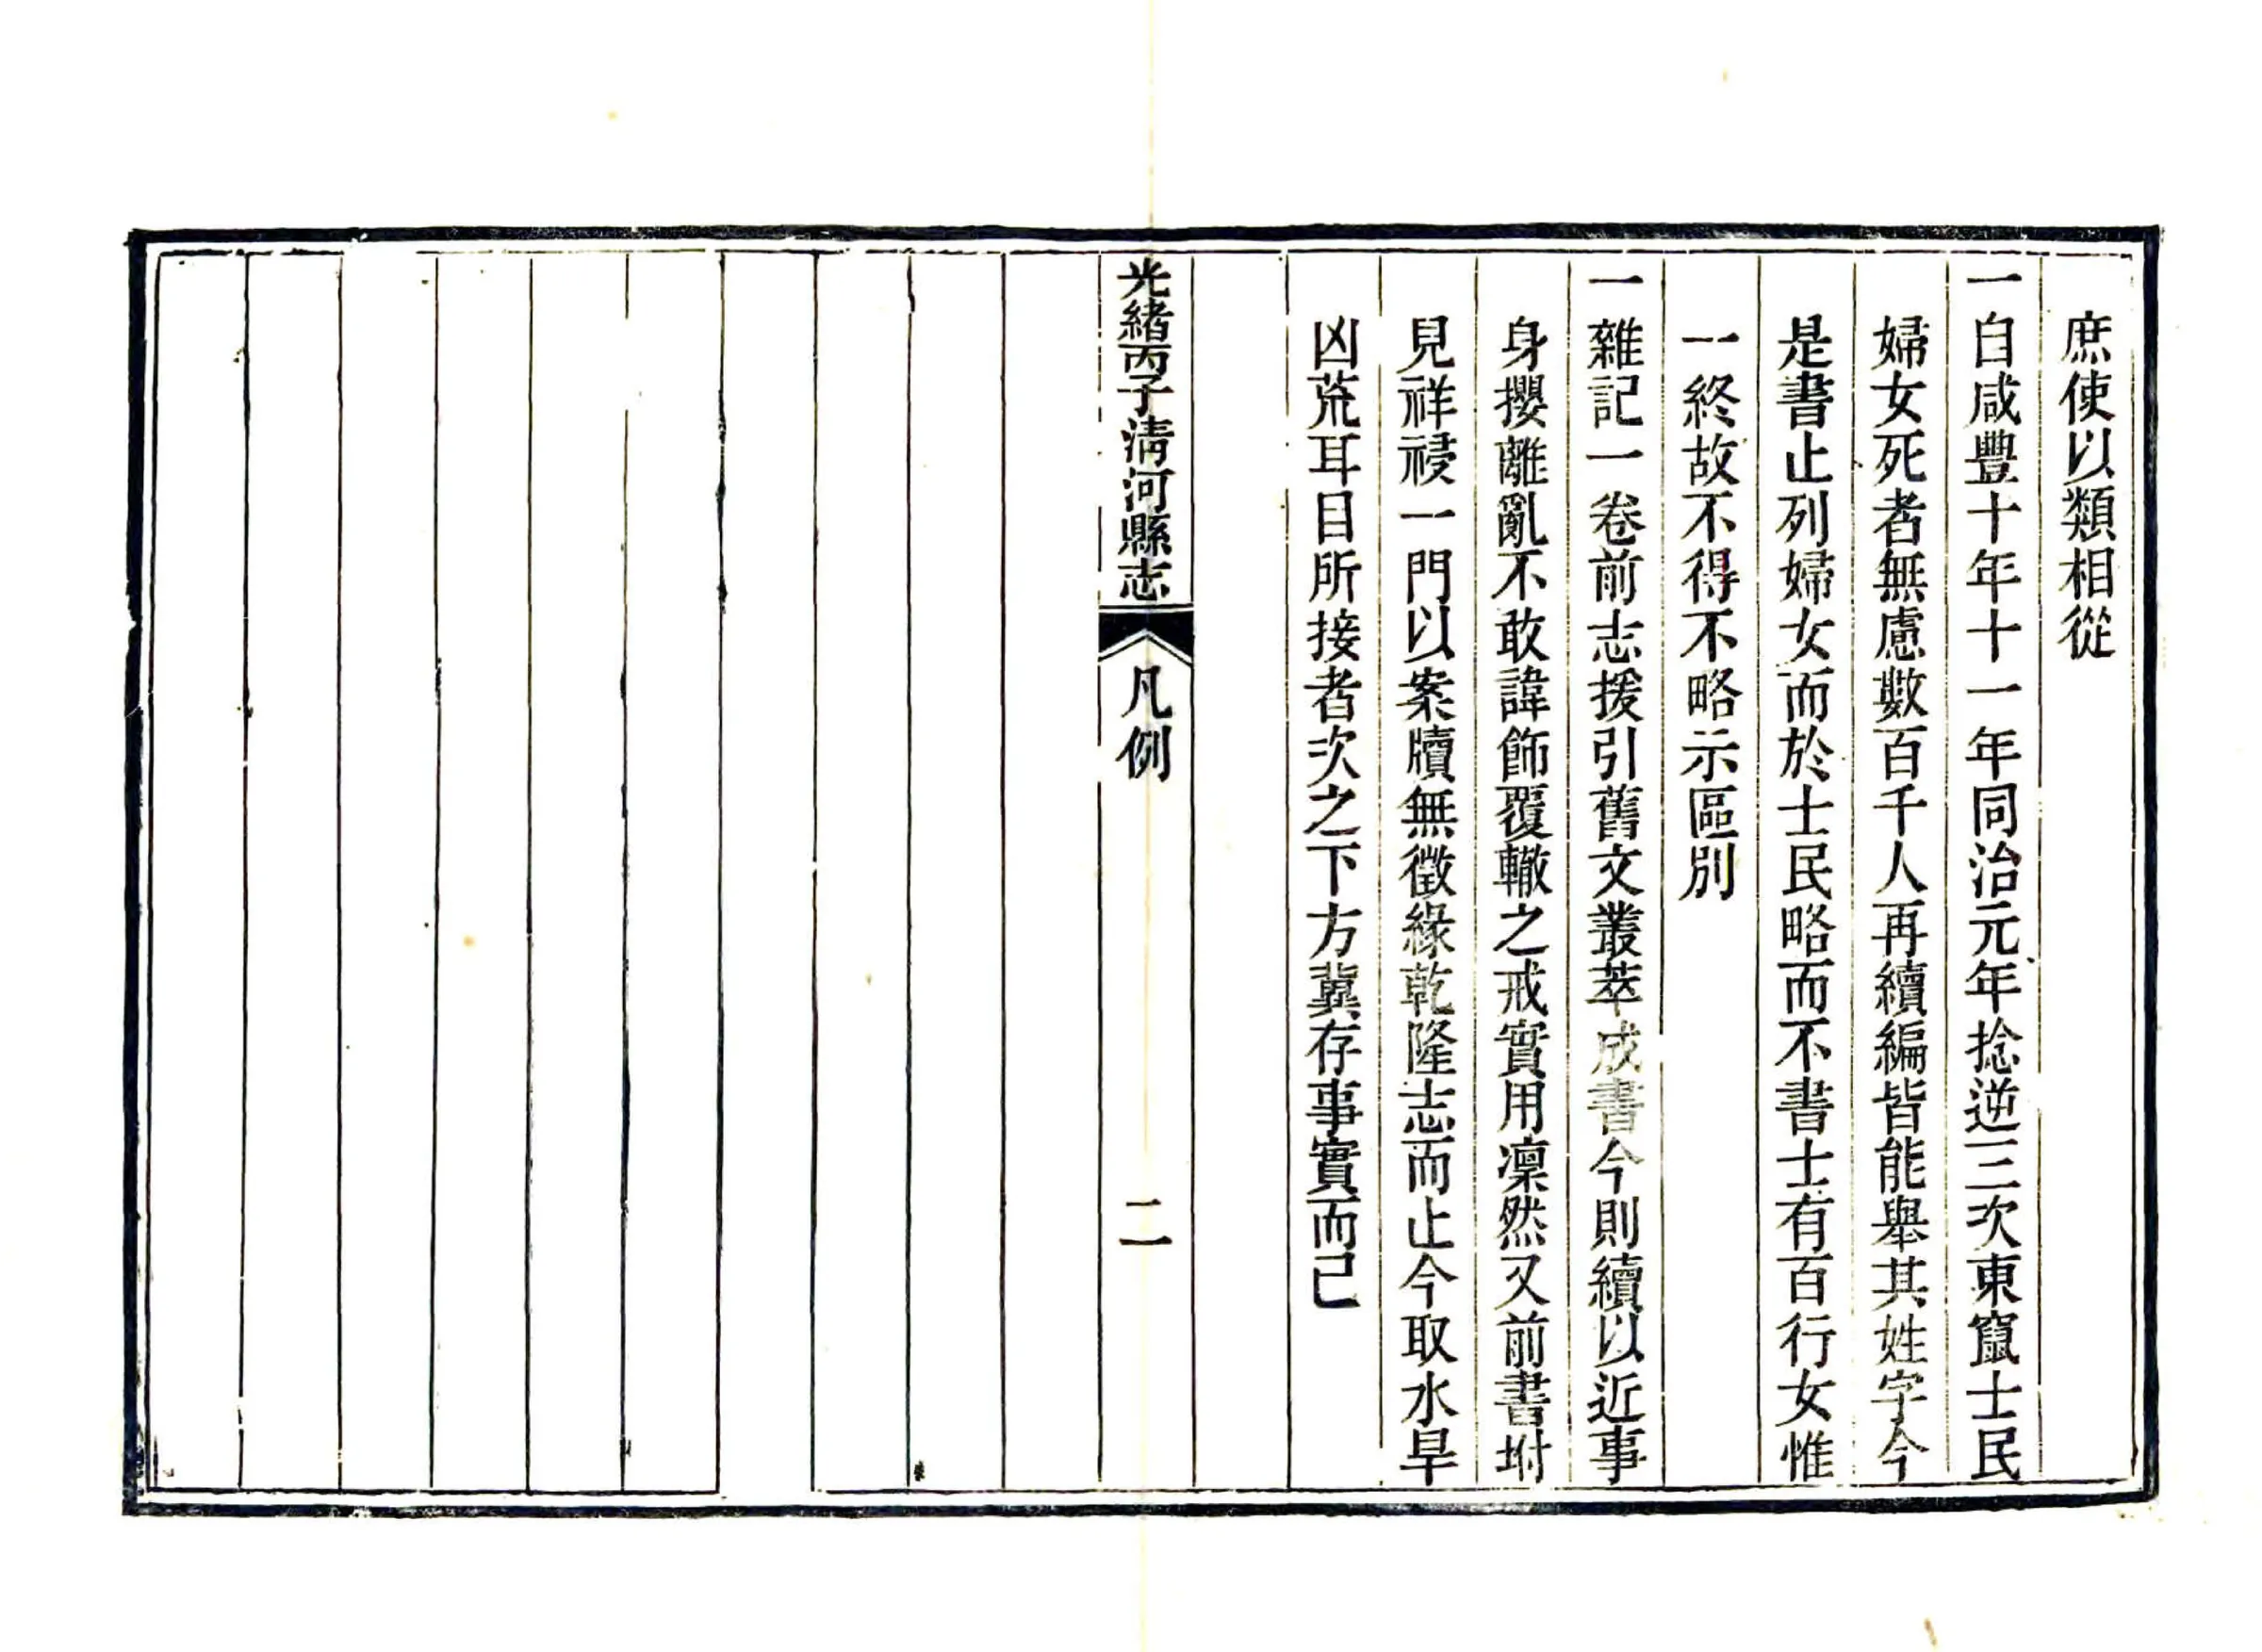 庶使以類相從
一自咸豐十年十一年同治元年捻逆三次東竄士民
婦女死者無慮數百千人再續編皆能舉其姓字今
是書止列婦女而於士民略而不書士有百行女惟
一終故不得不略示區別
一雜記一卷前志援引舊文叢萃成書今則續以近事
身攖離亂不敢諱飾覆轍之戒實用凜然又前書坿
見祥祲一門以案牘無徵緣乾隆志而止今取水旱
凶荒耳目所接者次之下方冀存事實而已
光緒丙子清河縣志
凡例
二